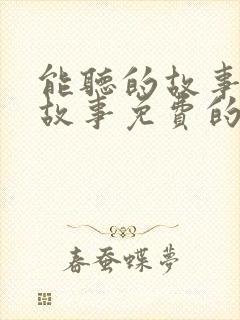 能聽的故事
故事免費的
春蚕蝶夢